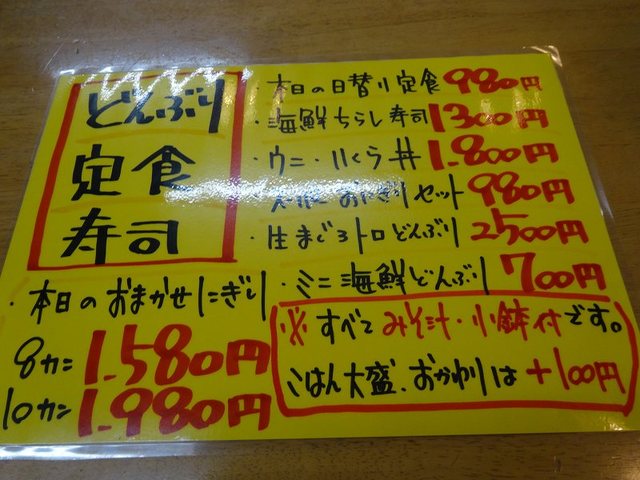 どんぶり
定食
寿司
・本日のおまかせにぎり
8カン 1.580円
10カン 1.980円
・本日の日替り定食 980円
・海鮮ちらし寿司 1300円
・ウニ・いくら丼 1.800円
おにぎりセット 980円
・生まぐろトロどんぶり 2500円
・ミニ海鮮どんぶり 700円
※すべてみそ汁・小鉢付です。
ごはん大盛、おかわりは+100円